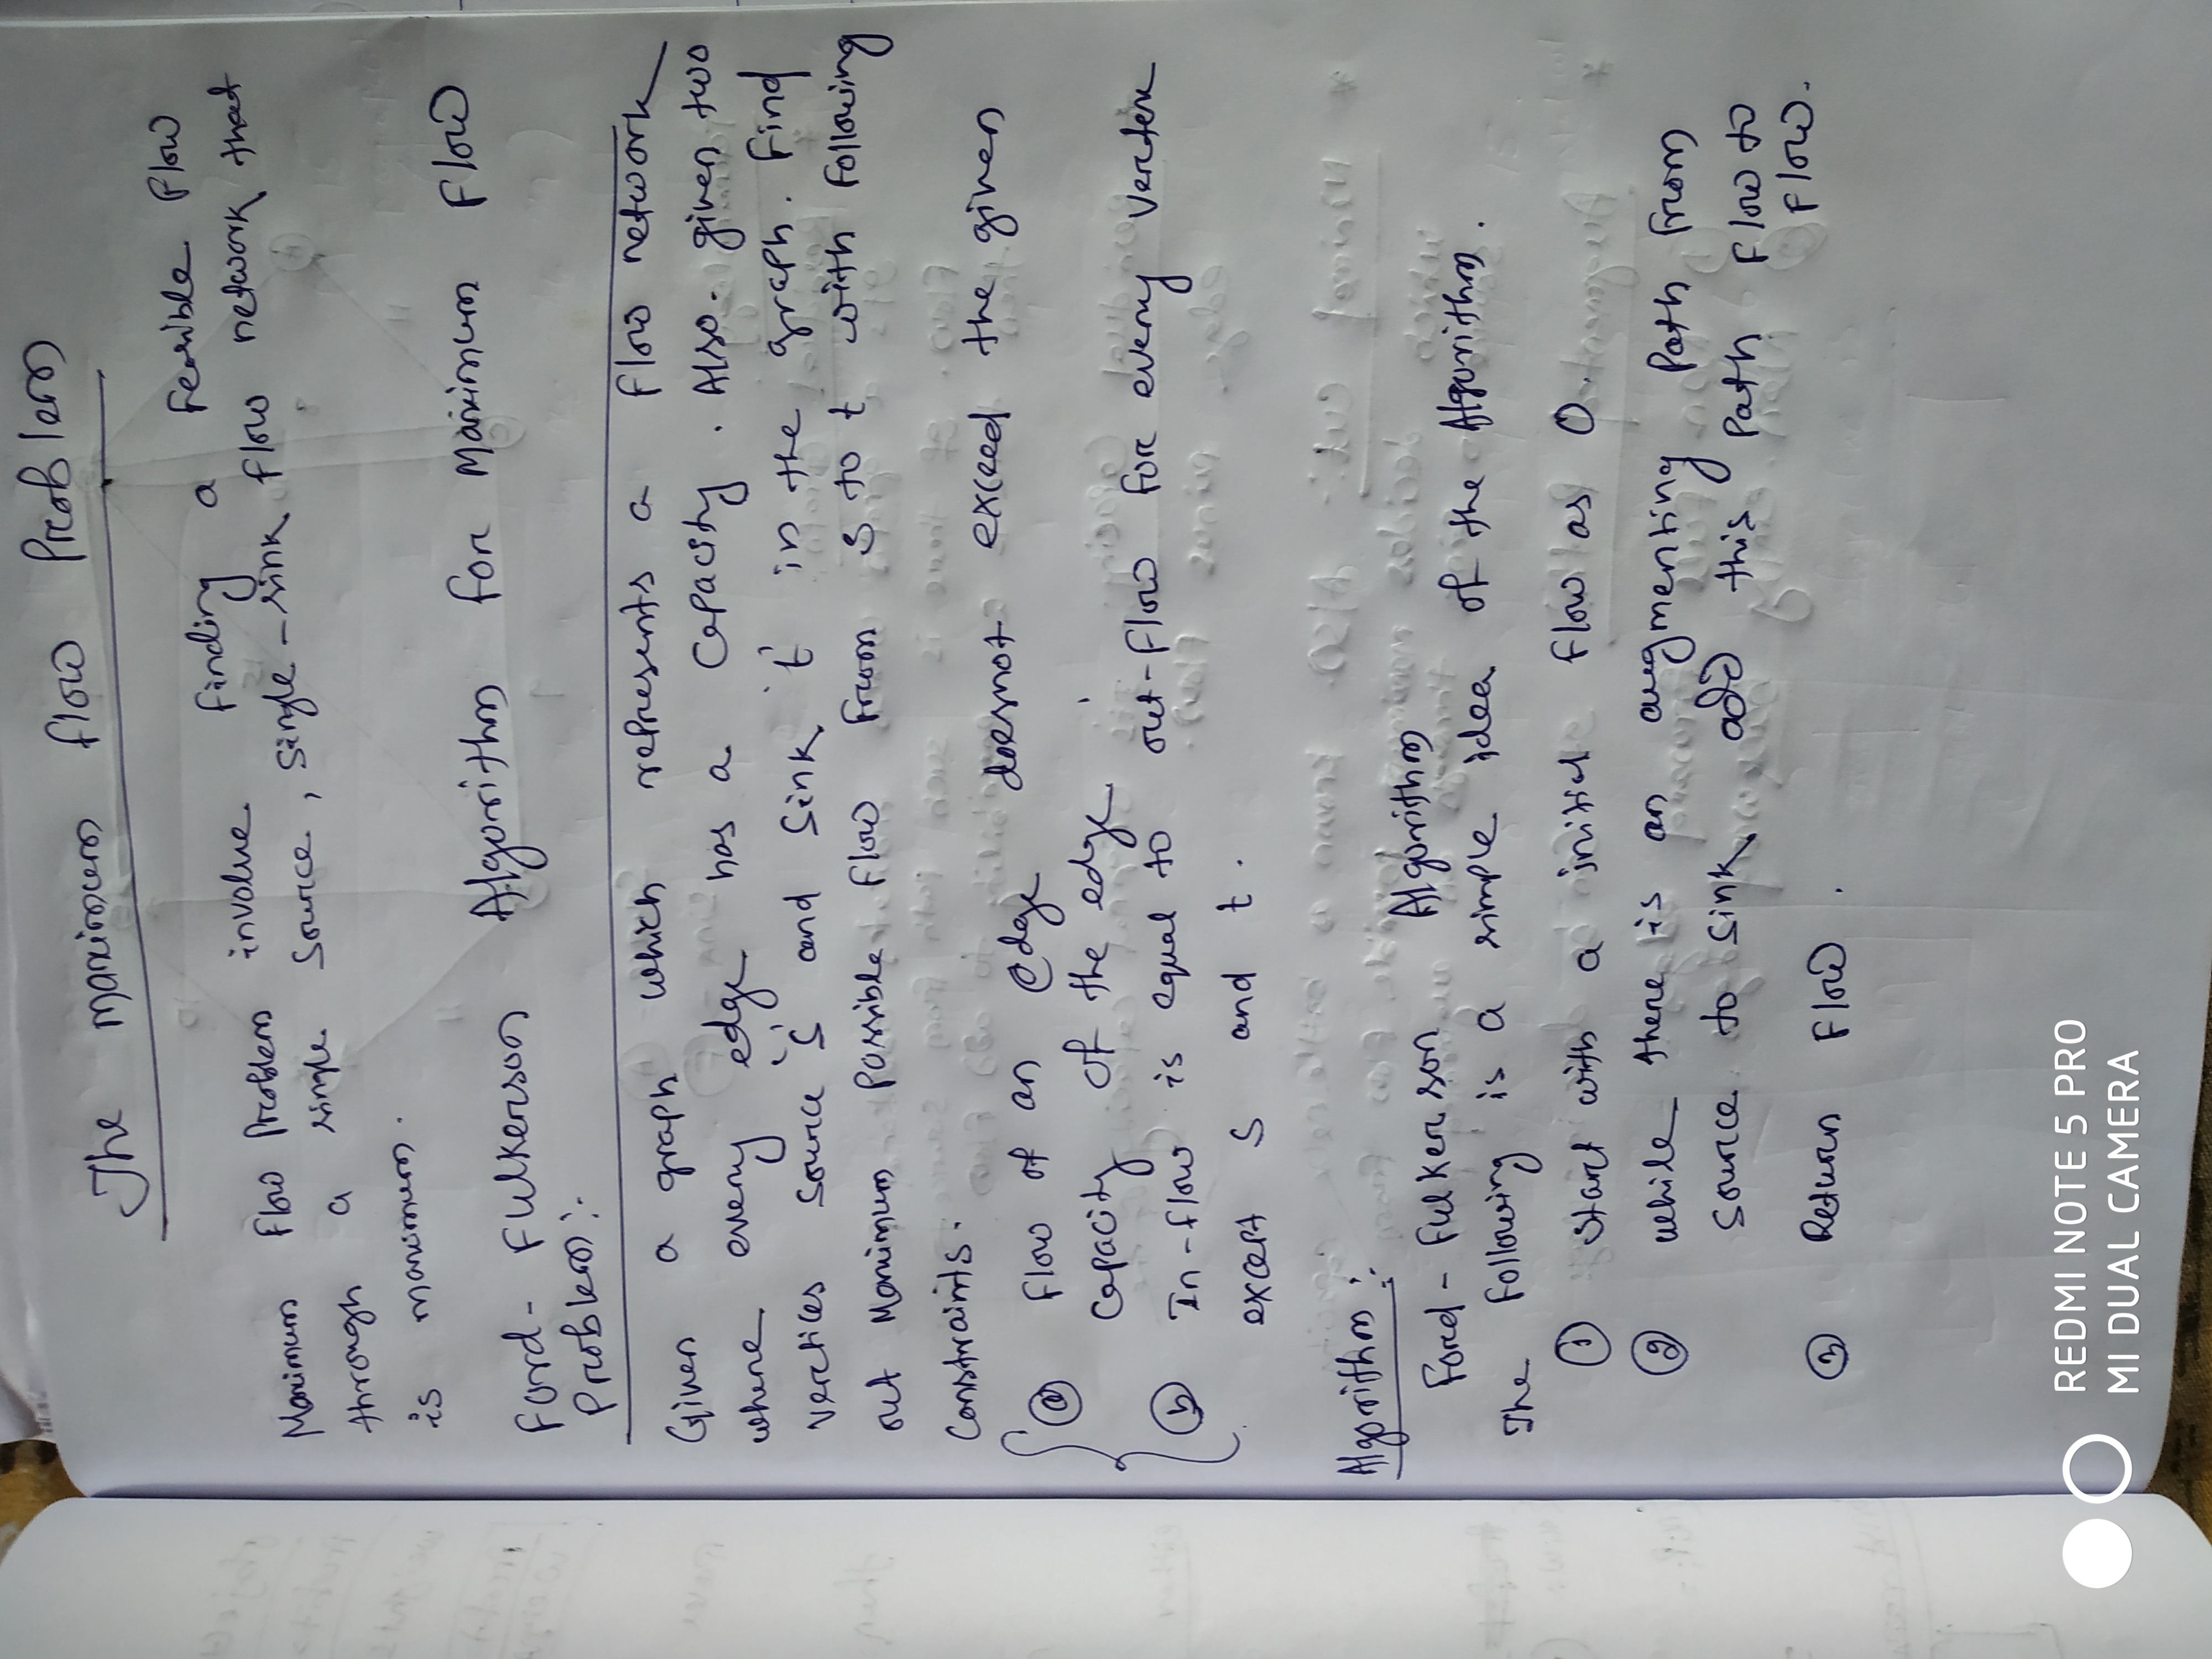 The maximum flow Problem
Maximum Flow Problem involve finding a feasible flow
through a single source, single-sink flow network that
is maximum.
Ford-Fulkerson Algorithm for Maximum Flow
Problem:-
Given a graph which represents a flow network
where every edge has a capacity. Also given two
vertices source 's' and sink 't' in the graph. Find
out Maximum Possible flow from s to t with following
constraints.
(a) Flow of an edge doesnot exceed the given
capacity of the edge.
(b) In-flow is equal to out-flow for every vertex
except s and t.
Algorithm:-
Ford-Fulkerson Algorithm
The following is a simple idea of the Algorithm.
(1) Start with a initial flow as 0.
(2) while there is an augmenting Path from
source to sink add this Path flow to
flow.
(3) Return Flow.
REDMI NOTE 5 PRO
MI DUAL CAMERA